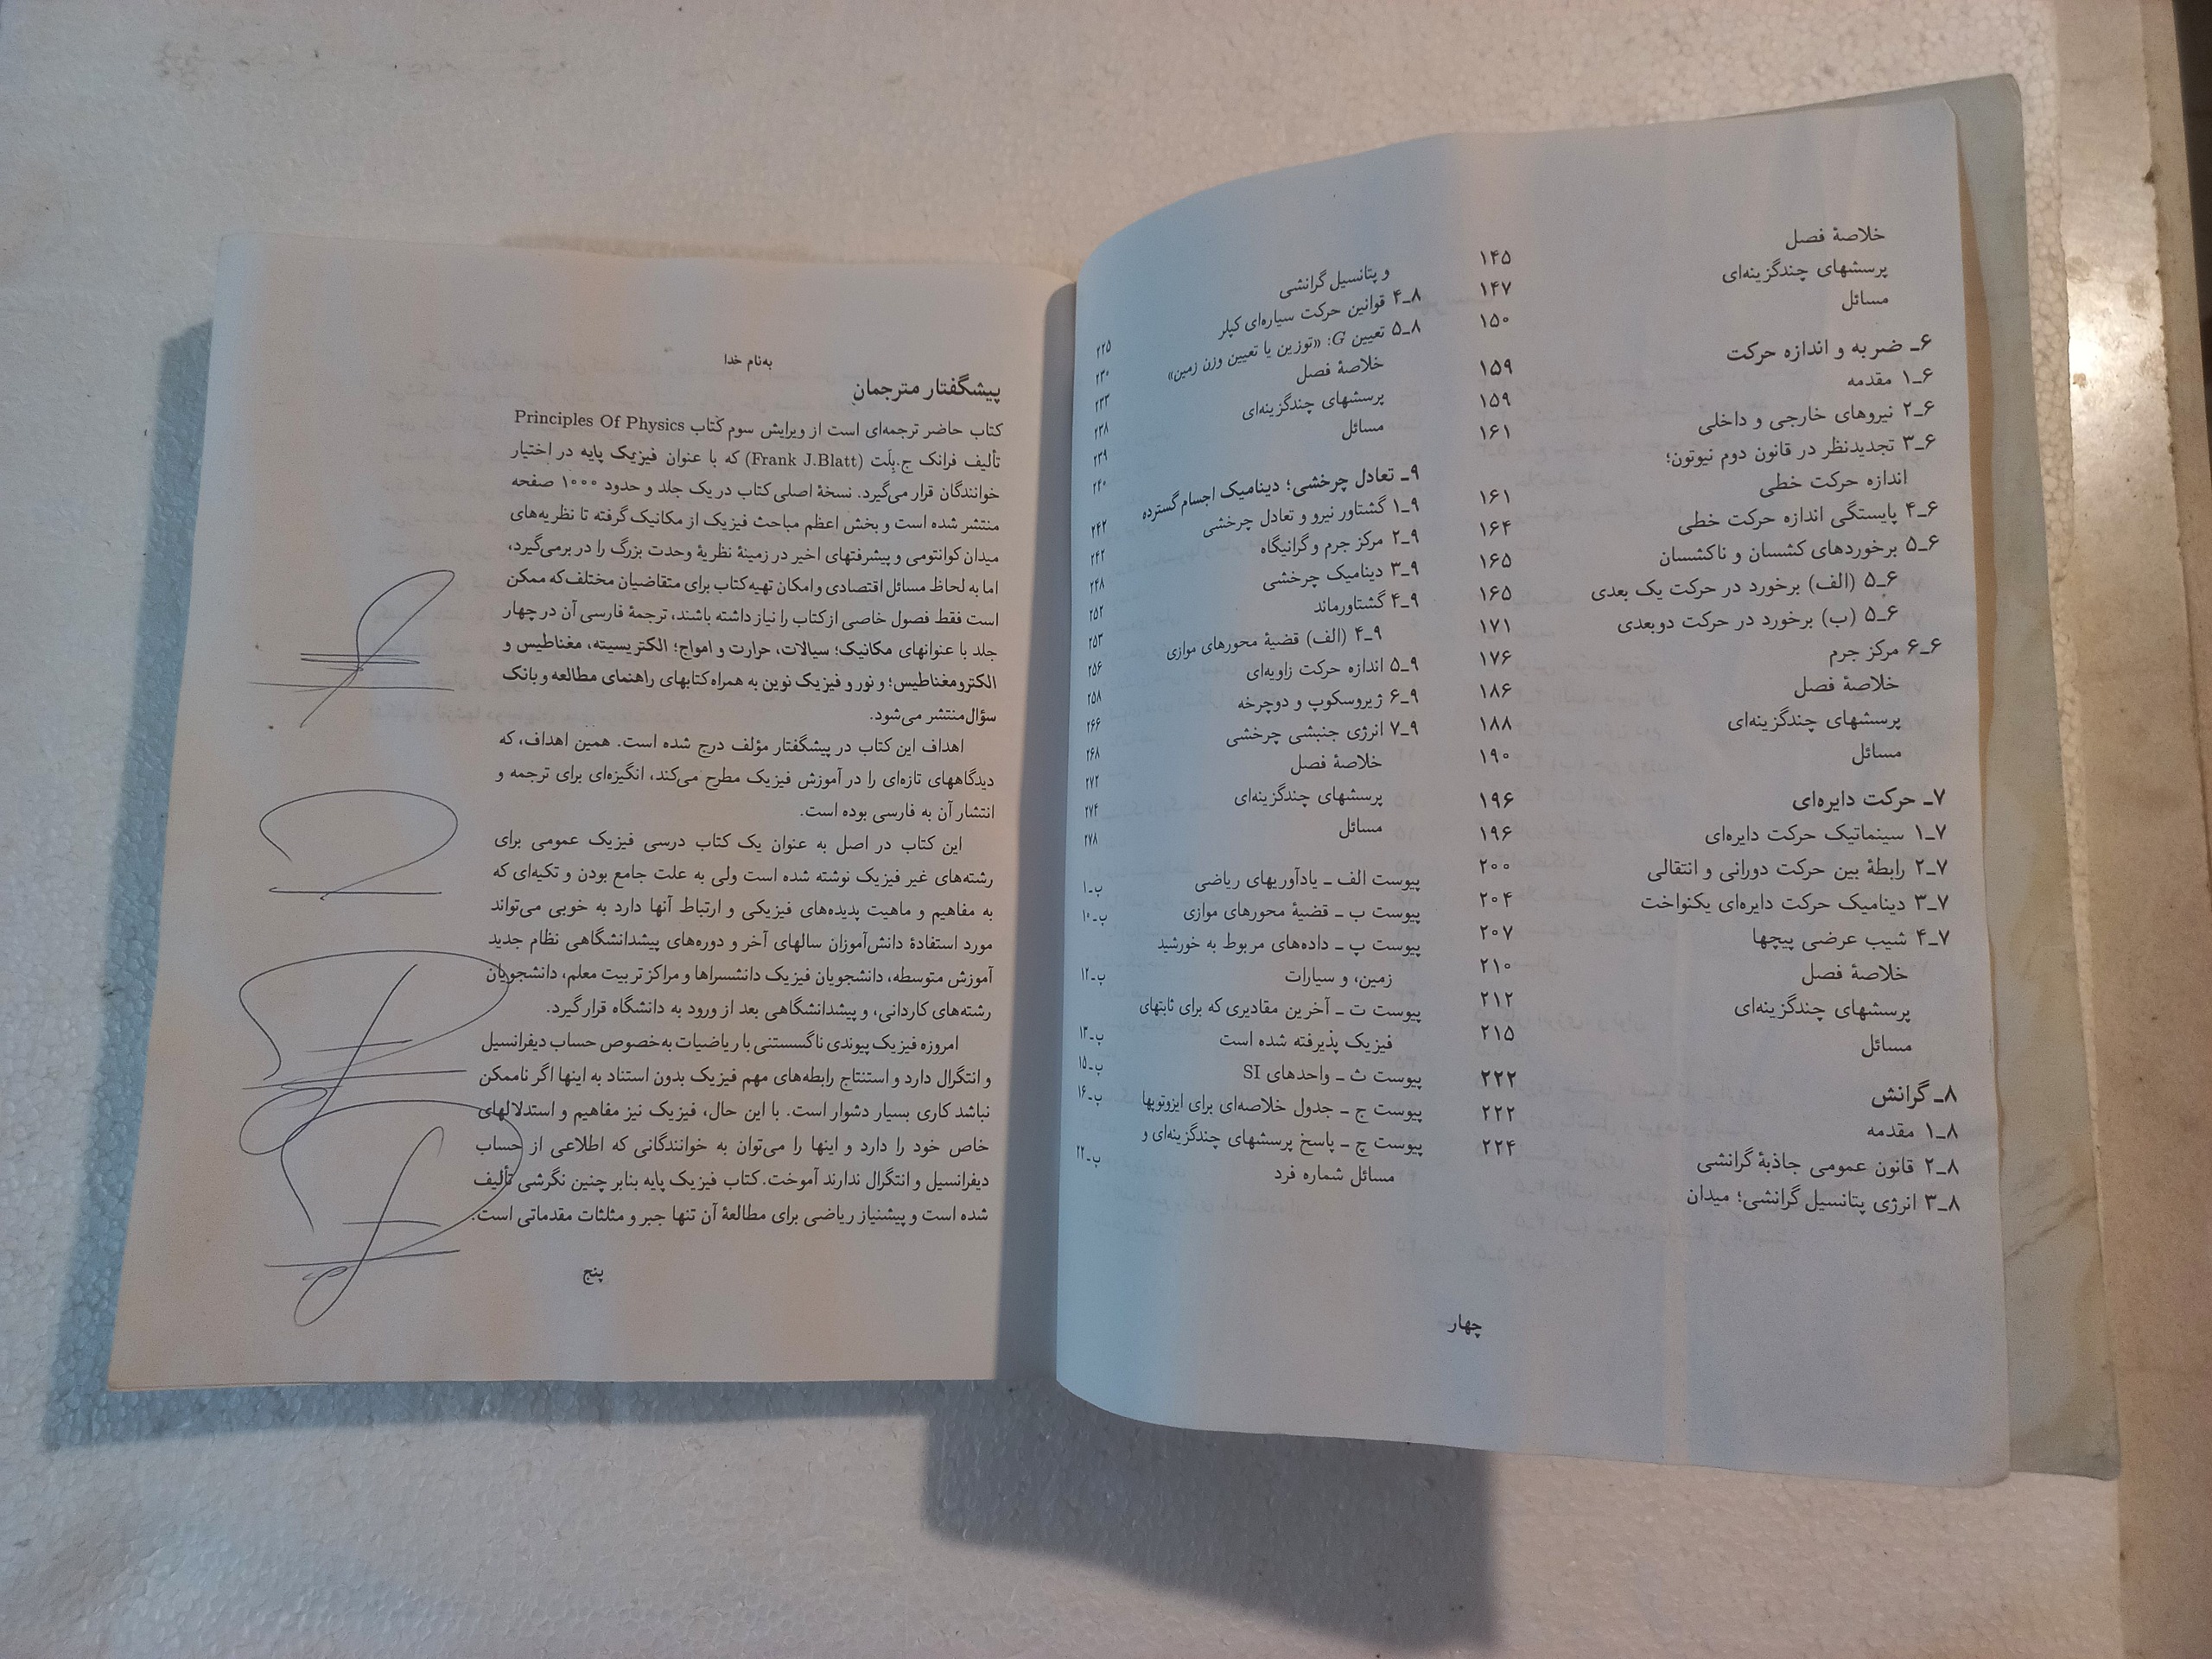 خلاصهٔ فصل ۱۴۵
پرسشهای چندگزینه‌ای ۱۴۷
مسائل ۱۵۰
۶ـ ضربه و اندازه حرکت ۱۵۹
۶ـ۱ مقدمه ۱۵۹
۶ـ۲ نیروهای خارجی و داخلی ۱۶۱
۶ـ۳ تجدیدنظر در قانون دوم نیوتون؛
اندازه حرکت خطی ۱۶۱
۶ـ۴ پایستگی اندازه حرکت خطی ۱۶۴
۶ـ۵ برخوردهای کشسان و ناکشسان ۱۶۵
۶ـ۵ (الف) برخورد در حرکت یک بعدی ۱۶۵
۶ـ۵ (ب) برخورد در حرکت دوبعدی ۱۷۱
۶ـ۶ مرکز جرم ۱۷۶
خلاصهٔ فصل ۱۸۶
پرسشهای چندگزینه‌ای ۱۸۸
مسائل ۱۹۰
۷ـ حرکت دایره‌ای ۱۹۶
۷ـ۱ سینماتیک حرکت دایره‌ای ۱۹۶
۷ـ۲ رابطهٔ بین حرکت دورانی و انتقالی ۲۰۰
۷ـ۳ دینامیک حرکت دایره‌ای یکنواخت ۲۰۴
۷ـ۴ شیب عرضی پیچها ۲۰۷
خلاصهٔ فصل ۲۱۰
پرسشهای چندگزینه‌ای ۲۱۲
مسائل ۲۱۵
۸ـ گرانش ۲۲۲
۸ـ۱ مقدمه ۲۲۲
۸ـ۲ قانون عمومی جاذبهٔ گرانشی ۲۲۴
۸ـ۳ انرژی پتانسیل گرانشی؛ میدان
و پتانسیل گرانشی ۲۲۵
۸ـ۴ قوانین حرکت سیاره‌ای کپلر ۲۳۰
۸ـ۵ تعیین G: «توزین یا تعیین وزن زمین» ۲۳۳
خلاصهٔ فصل ۲۳۸
پرسشهای چندگزینه‌ای ۲۳۹
مسائل ۲۴۰
۹ـ تعادل چرخشی؛ دینامیک اجسام گسترده ۲۴۲
۹ـ۱ گشتاور نیرو و تعادل چرخشی ۲۴۲
۹ـ۲ مرکز جرم و گرانیگاه ۲۴۸
۹ـ۳ دینامیک چرخشی ۲۵۲
۹ـ۴ گشتاورماند ۲۵۳
۹ـ۴ (الف) قضیهٔ محورهای موازی ۲۵۶
۹ـ۵ اندازه حرکت زاویه‌ای ۲۵۸
۹ـ۶ ژیروسکوپ و دوچرخه ۲۶۶
۹ـ۷ انرژی جنبشی چرخشی ۲۶۸
خلاصهٔ فصل ۲۷۲
پرسشهای چندگزینه‌ای ۲۷۴
مسائل ۲۷۸
پیوست الف ـ یادآوریهای ریاضی ب-۱
پیوست ب ـ قضیهٔ محورهای موازی ب-۱۰
پیوست پ ـ داده‌های مربوط به خورشید
زمین، و سیارات ب-۱۲
پیوست ت ـ آخرین مقادیری که برای ثابتهای
فیزیک پذیرفته شده است ب-۱۳
پیوست ث ـ واحدهای SI ب-۱۵
پیوست ج ـ جدول خلاصه‌ای برای ایزوتوپها ب-۱۶
پیوست چ ـ پاسخ پرسشهای چندگزینه‌ای و
مسائل شماره فرد ب-۲۲
چهار
به‌نام خدا
پیشگفتار مترجمان
کتاب حاضر ترجمه‌ای است از ویرایش سوم کتاب Principles Of Physics
تألیف فرانک ج.بِلَت (Frank J.Blatt) که با عنوان فیزیک پایه در اختیار
خوانندگان قرار می‌گیرد. نسخهٔ اصلی کتاب در یک جلد و حدود ۱۰۰۰ صفحه
منتشر شده است و بخش اعظم مباحث فیزیک از مکانیک گرفته تا نظریه‌های
میدان کوانتومی و پیشرفتهای اخیر در زمینهٔ نظریهٔ وحدت بزرگ را در برمی‌گیرد،
اما به لحاظ مسائل اقتصادی و امکان تهیه کتاب برای متقاضیان مختلف که ممکن
است فقط فصول خاصی از کتاب را نیاز داشته باشند، ترجمهٔ فارسی آن در چهار
جلد با عنوانهای مکانیک؛ سیالات، حرارت و امواج؛ الکتریسیته، مغناطیس و
الکترومغناطیس؛ و نور و فیزیک نوین به همراه کتابهای راهنمای مطالعه و بانک
سؤال منتشر می‌شود.
اهداف این کتاب در پیشگفتار مؤلف درج شده است. همین اهداف، که
دیدگاههای تازه‌ای را در آموزش فیزیک مطرح می‌کند، انگیزه‌ای برای ترجمه و
انتشار آن به فارسی بوده است.
این کتاب در اصل به عنوان یک کتاب درسی فیزیک عمومی برای
رشته‌های غیر فیزیک نوشته شده است ولی به علت جامع بودن و تکیه‌ای که
به مفاهیم و ماهیت پدیده‌های فیزیکی و ارتباط آنها دارد به خوبی می‌تواند
مورد استفادهٔ دانش‌آموزان سالهای آخر و دوره‌های پیشدانشگاهی نظام جدید
آموزش متوسطه، دانشجویان فیزیک دانشسراها و مراکز تربیت معلم، دانشجویان
رشته‌های کاردانی، و پیشدانشگاهی بعد از ورود به دانشگاه قرار گیرد.
امروزه فیزیک پیوندی ناگسستنی با ریاضیات به‌خصوص حساب دیفرانسیل
و انتگرال دارد و استنتاج رابطه‌های مهم فیزیک بدون استناد به اینها اگر ناممکن
نباشد کاری بسیار دشوار است. با این حال، فیزیک نیز مفاهیم و استدلالهای
خاص خود را دارد و اینها را می‌توان به خوانندگانی که اطلاعی از حساب
دیفرانسیل و انتگرال ندارند آموخت. کتاب فیزیک پایه بنابر چنین نگرشی تألیف
شده است و پیشنیاز ریاضی برای مطالعهٔ آن تنها جبر و مثلثات مقدماتی است.
پنج